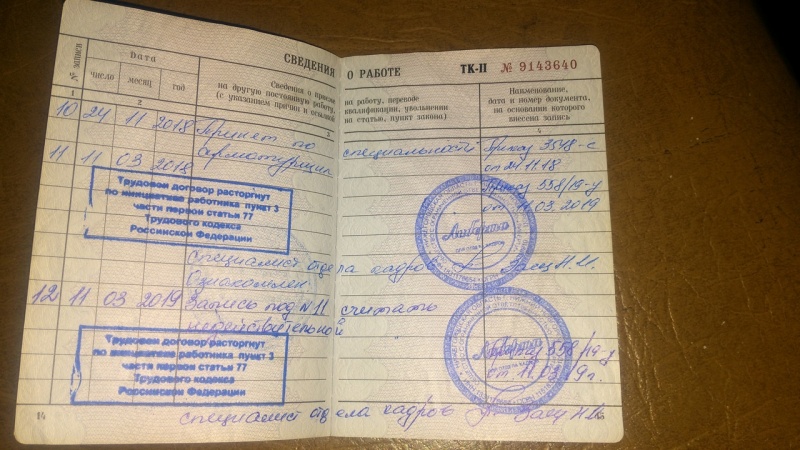 СВЕДЕНИЯ О РАБОТЕ ТК-II № 9143640
№ записи
Дата
число месяц год
Сведения о приеме
на другую постоянную работу,
(с указанием причин и ссылкой
на работу, переводе
квалификации, увольнении
на статью, пункт закона)
Наименование,
дата и номер документа,
на основании которого
внесена запись
1 2 3 4
10 24 11 2018 Принят по специальности Приказ 3548-с
арматурщик от 24.11.18
11 11 03 2018 Приказ 558/19-у
от 11.03.2019
Трудовой договор расторгнут
по инициативе работника пункт 3
части первой статьи 77
Трудового кодекса
Российской Федерации
специалист отдела кадров Заец Н.И.
Ознакомлен
12 11 03 2019 Запись под N 11 считать
недействительной
Приказ 558/19-у
от 11.03.19г.
Трудовой договор расторгнут
по инициативе работника пункт 3
части первой статьи 77
Трудового кодекса
Российской Федерации
специалист отдела кадров Заец Н.И.
14